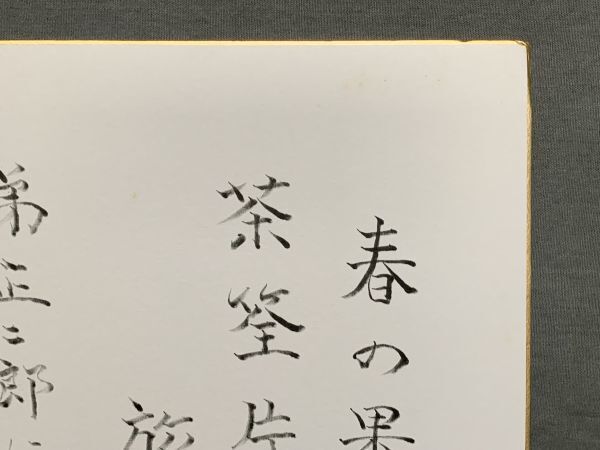 春の果
茶筌片
旅
弟正二郎